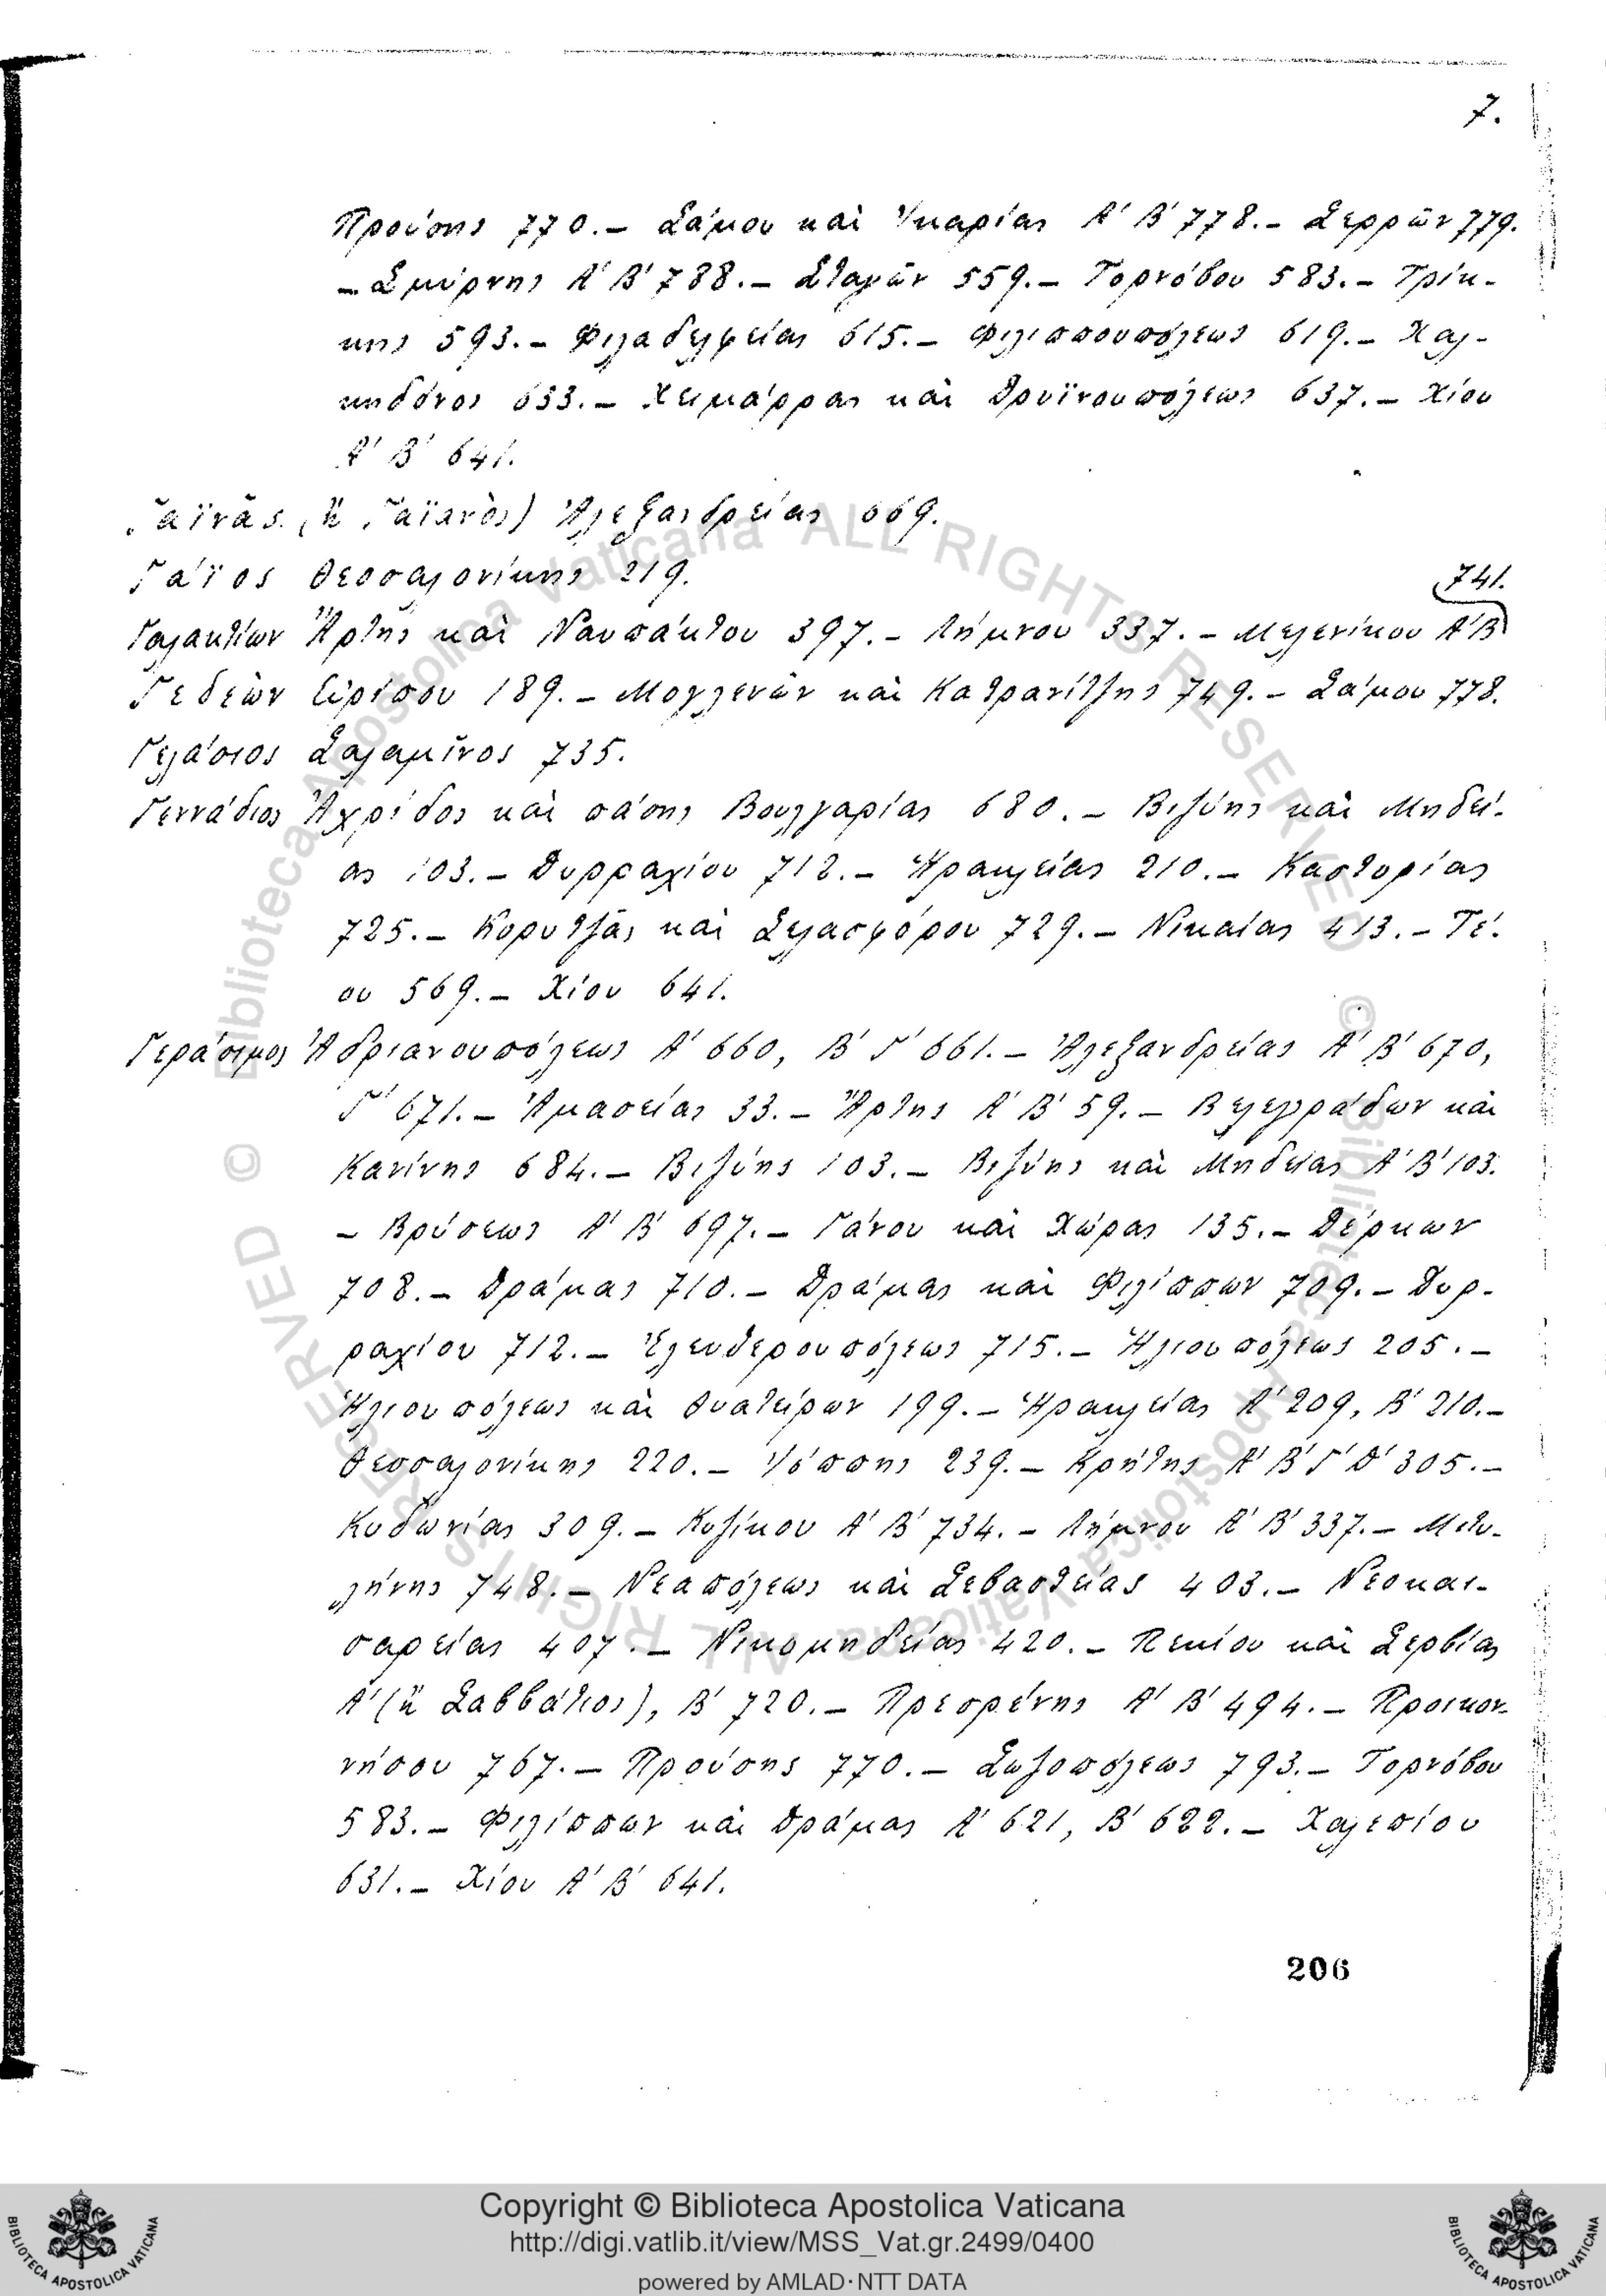 7.
Προύσης 770.— Σάμου καὶ Ἰκαρίας Α΄ Β΄ 778.— Σερρῶν 779.
— Σμύρνης Α΄ Β΄ 788.— Σταγῶν 559.— Τορνόβου 583.— Τρίκ-
κης 593.— Φιλαδελφείας 615.— Φιλιππουπόλεως 619.— Χαλ-
κηδόνος 633.— Χειμάρρας καὶ Δρυϊνουπόλεως 637.— Χίου
Α΄ Β΄ 641.
Γαϊνᾶς (ἢ Γαϊανὸς) Ἀλεξανδρείας 669.
Γάϊος Θεσσαλονίκης 219.
741.
Γαλακτίων Ἄρτης καὶ Ναυπάκτου 397.— Λήμνου 337.— Μελενίκου Α΄ Β΄
Γεδεὼν Εὐρίπου 189.— Μογλενῶν καὶ Κατρανίτζης 749.— Σάμου 778.
Γελάσιος Σαλαμῖνος 735.
Γεννάδιος Ἀχρίδος καὶ πάσης Βουλγαρίας 680.— Βιζύης καὶ Μηδεί-
ας 103.— Δυρραχίου 712.— Ἡρακλείας 210.— Καστορίας
725.— Κορυτζᾶς καὶ Σελασφόρου 729.— Νικαίας 413.— Τέ-
ου 569.— Χίου 641.
Γεράσιμος Ἀδριανουπόλεως Α΄ 660, Β΄ Γ΄ 661.— Ἀλεξανδρείας Α΄ Β΄ 670,
Γ΄ 671.— Ἀμασείας 33.— Ἄρτης Α΄ Β΄ 59.— Βελεγράδων καὶ
Κανίνης 684.— Βιζύης 103.— Βιζύης καὶ Μηδείας Α΄ Β΄ 103.
— Βρύσεως Α΄ Β΄ 697.— Γάνου καὶ Χώρας 135.— Δέρκων
708.— Δράμας 710.— Δράμας καὶ Φιλίππων 709.— Δυρ-
ραχίου 712.— Ἐλευθερουπόλεως 715.— Ἡλιουπόλεως 205.—
Ἡλιουπόλεως καὶ Θυατείρων 199.— Ἡρακλείας Α΄ 209, Β΄ 210.—
Θεσσαλονίκης 220.— Ἰόππης 239.— Κρήτης Α΄ Β΄ Γ΄ Δ΄ 305.—
Κυδωνίας 309.— Κυζίκου Α΄ Β΄ 734.— Λήμνου Α΄ Β΄ 337.— Μιτυ-
λήνης 748.— Νεαπόλεως καὶ Σεβαστείας 403.— Νεοκαι-
σαρείας 407.— Νικομηδείας 420.— Πεκίου καὶ Σερβίας
Α΄ (ἢ Σαββάτιος), Β΄ 720.— Πρεσρένης Α΄ Β΄ 494.— Προικον-
νήσου 767.— Προύσης 770.— Σωζοπόλεως 793.— Τορνόβου
583.— Φιλίππων καὶ Δράμας Α΄ 621, Β΄ 622.— Χαλεπίου
631.— Χίου Α΄ Β΄ 641.
206
© Biblioteca Apostolica Vaticana ALL RIGHTS RESERVED © Biblioteca Apostolica Vaticana ALL RIGHTS RESERVED
Copyright © Biblioteca Apostolica Vaticana
http://digi.vatlib.it/view/MSS_Vat.gr.2499/0400
powered by AMLAD·NTT DATA
BIBLIOTECA APOSTOLICA VATICANA
BIBLIOTECA APOSTOLICA VATICANA